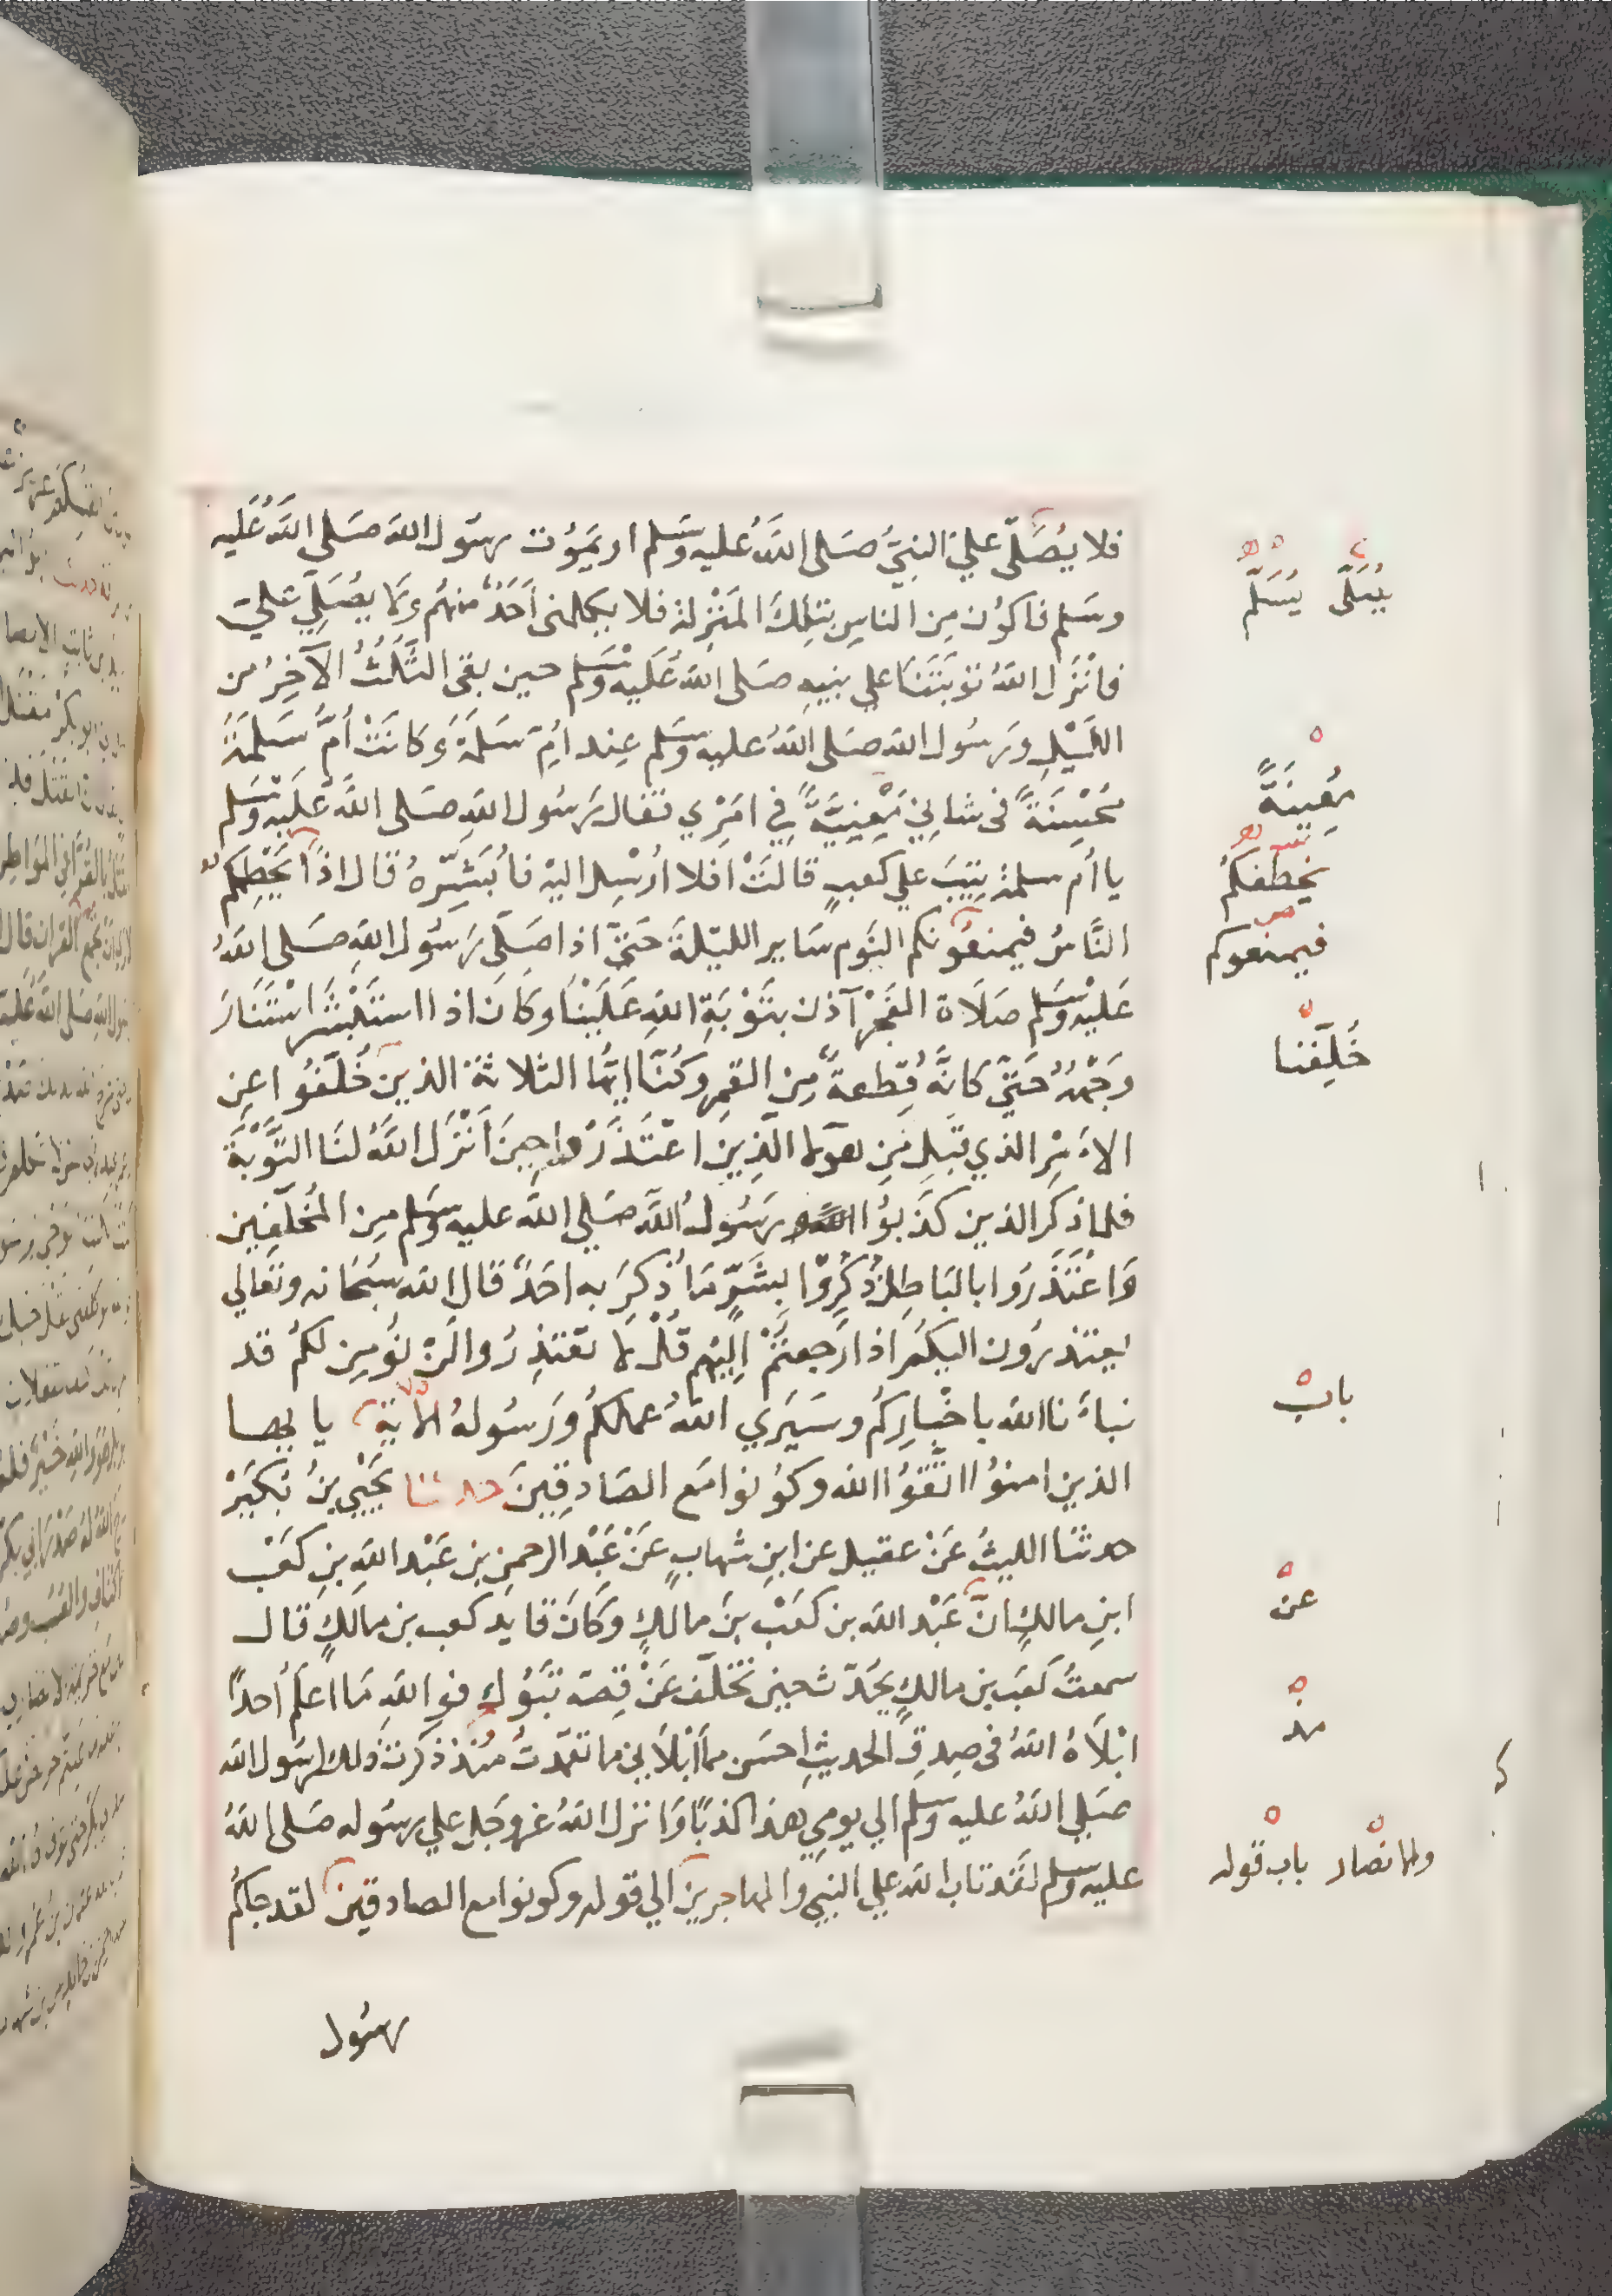 فلا يُصَلّى عليَّ النبيُّ صَلى اللهُ عليه وسَلم او يَمُوت رسُول الله صَلى اللهُ عَليه
وسَلم فاكوُن مِن الناسِ بتلِكَ المَنْزِلة فلا يكلمنى اَحَدٌ منهُم ولا يُصَلِّي عليّ
فاَنْزَل اللهُ تَوْبَتَنَا علي نبيهِ صَلى الله عَليه وسَلم حين بقى الثُّلُثُ الآخِرُ من
اللَّيْلِ ورَسُول الله صَلى اللهُ عليه وسَلم عِند اُمِّ سَلمَةَ وَكانَتْ اُمُّ سَلمَةَ
مُحْسِنَةً فى شانِي مَعْنِيَّةً فِي امْرِي فقال رَسُول اللهِ صَلى اللهُ عَليْه وسَلم
يا اُم سلمة تِيبَ علي كعبٍ قالَتْ افلا اُرْسِل اليْه فاُبَشِّرهُ قال اذًا يَحْطِمكم
النَّاسُ فيمنعُونكم النوَم سَاير الليْلةَ حَتىّ اذا صَلَّى رَسُول اللهِ صَلى اللهُ
عَليْه وسَلم صَلَاة الفَجْر آذن بتَوْبَةِ اللهِ عَلَيْنَا وكَان اذا استَبْشَر اسْتَنَارَ
وَجْههُ حَتيّ كانَّهُ قِطعةٌ مِن القمِر وكُنَّا ايّها الثلاثة الذين خُلِّفُوا عِن
الاَمْرِ الذي قُبِلَ مِن هولا الَّذِينَ اعْتَذَرُوا حِينَ اَنْزَل اللهُ لنَا التَّوْبَةَ
فلما ذكر الذين كذَبوُا رسُولُ الله صَلي الله عليه وسَلم مِن المُخَلَّفِين
وَاعْتَذَرَوا بالبَاطِل ذُكِرُوْا بِشَرِّ مَا ذُكِرَ به احَدٌ قال الله سبحَانه وتعَالي
يعتذرُون اليكمُ اذا رَجعتمْ اِليْهم قُلْ لا تعْتذِرُوا لنْ نوُمِن لكمُ قد
نباَنا الله باخْبارِكمُ وسَيَرَي اللهُ عملكمُ ورَسُولهُ الاية يا ايها
الذين امنوُا اتَّقوُا الله وكوُنوا مَع الصَادقِينَ حدثنا يَحْييَ بنُ بُكَيْرْ
حدثنَا الليثُ عَنْ عقيل عن ابنِ شهابٍ عَنْ عَبْد الرحمنِ بن عَبْد اللهِ بنِ كعَبْ
ابنِ مالكٍ انَّ عَبْد الله بن كعَبْ بنَ مالكٍ وَكَانَ قايد كعب بن مالكٍ قال
سمعتُ كَعَبَ بن مالكٍ يحَدّث حين تخَلَّف عَنْ قِصَّة تَبُوُك فو اللهِ مَا اعلمُ اَحدًا
ابْلَاهُ اللهُ فى صِدقِ الحديثِ احسَن مما اَبْلاَني ما تعمّدتُ مُنْذ ذكرت ذلك لرسُول الله
صَلي اللهُ عليه وسَلم الي يومِي هذا كذبًا وَانزل اللهُ عز وَجَل علي رسُوله صَلى اللهُ
عليه وسَلم لقَد تاب الله علي النبيِ والمهاجرين الي قوله وكونوا مع الصادقين لقد جاكُم
رسُول
يُصَلَّى يُسَلّم
مُعِينَةً
يَخطفكُم
فيمنعوكم
خُلّفنا
باب
عن
مذ
والانصَار باب قوله